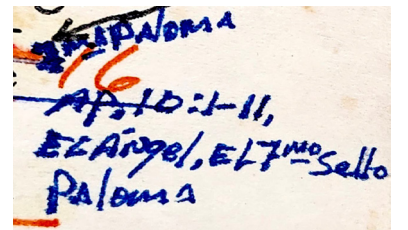 PALOMA
16
AP. 10:1-11,
EL Ángel, EL 7mo Sello
PALOMA